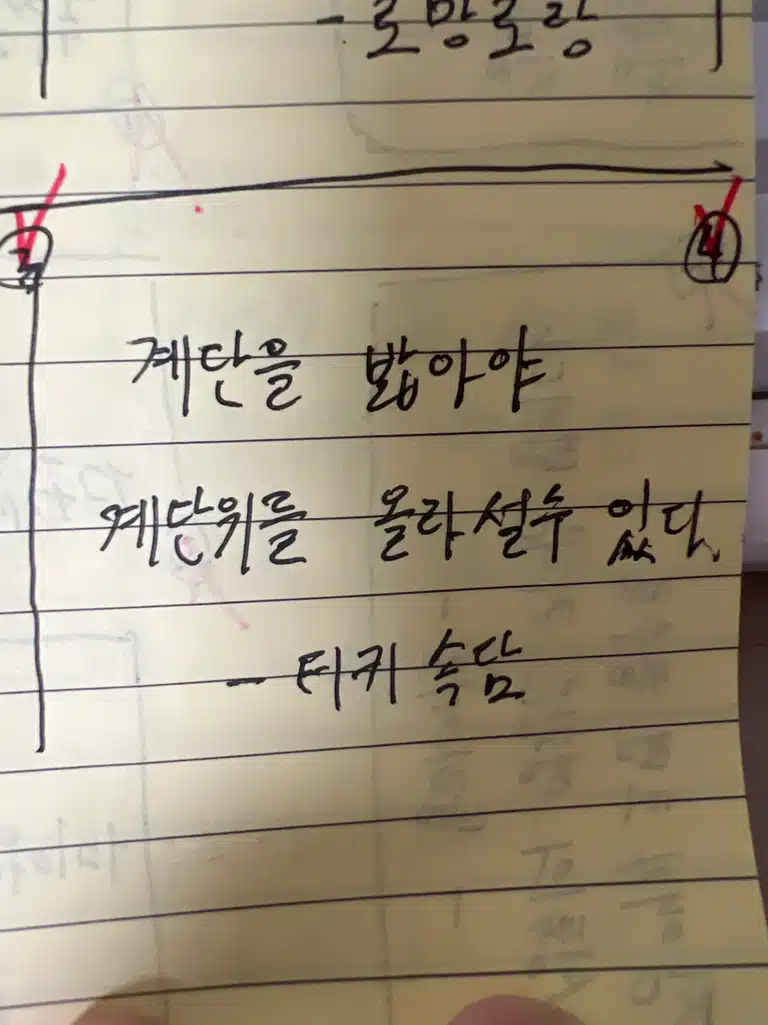 - 로망로랑
계단을 밟아야
계단위를 올라설수 있다.
- 터키 속담